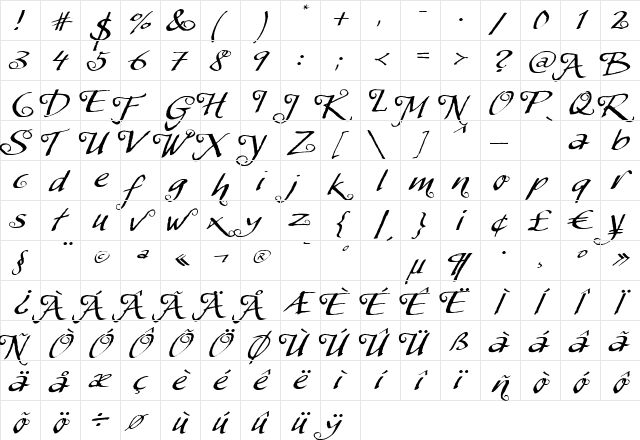 ! # $ % & ( ) * + , - . / 0 1 2
3 4 5 6 7 8 9 : ; < = > ? @ A B
C D E F G H I J K L M N O P Q R
S T U V W X Y Z [ \ ] ^ _ ` a b
c d e f g h i j k l m n o p q r
s t u v w x y z { | } ¡ ¢ £ € ¥
§ ¨ © ª « ¬ ® ¯ ° µ ¶ · ¸ º »
¿ À Á Â Ã Ä Å Æ È É Ê Ë Ì Í Î Ï
Ñ Ò Ó Ô Õ Ö Ø Ù Ú Û Ü ß à á â ã
ä å æ ç è é ê ë ì í î ï ñ ò ó ô
õ ö ÷ ø ù ú û ü ÿ